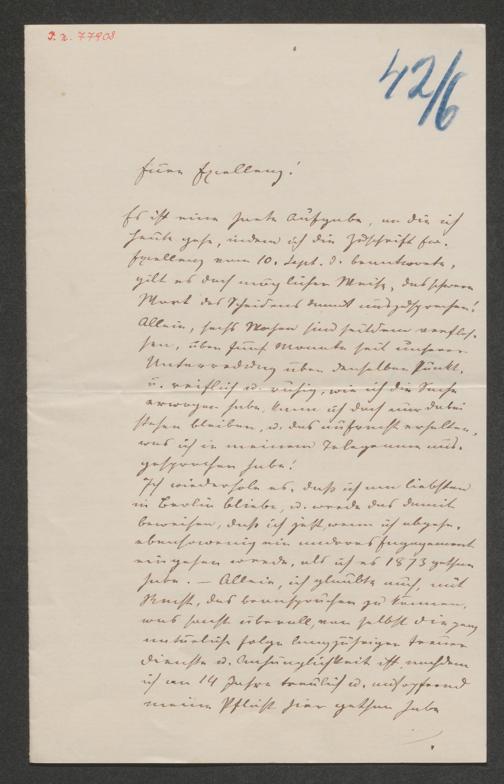 I. N. 77908
42/6
Euere Exzellenz!
Es ist eine harte Aufgabe, an die ich
heute gehe, indem ich die Zuschrift Eu.
Exzellenz vom 10. Sept. d. beantworte,
gilt es doch möglicher Weise, das schwere
Wort des Scheidens damit auszusprechen!
Allein, sechs Wochen sind seitdem verflos-
sen, über fünf Monate seit unserer
Unterredung über denselben Punkt,
u. reiflich u. ruhig, wie ich die Sache
erwogen habe, kann ich doch nur dabei
stehen bleiben, u. das aufrecht erhalten,
was ich in meinem Telegramm aus-
gesprochen habe!
Ich wiederhole es, daß ich am liebsten
in Berlin bliebe, u. werde das damit
beweisen, daß ich jetzt, wenn ich abgehe,
ebensowenig ein anderes Engagement
eingehen werde, als ich es 1873 gethan
habe. – Allein, ich glaubte auch, mit
Recht, das beanspruchen zu können,
was sonst überall, von selbst die ganz
natürliche Folge langjähriger treuer
Dienste u. Anhänglichkeit ist, nachdem
ich an 14 Jahre treulich u. aufopfernd
meine Pflicht hier gethan habe